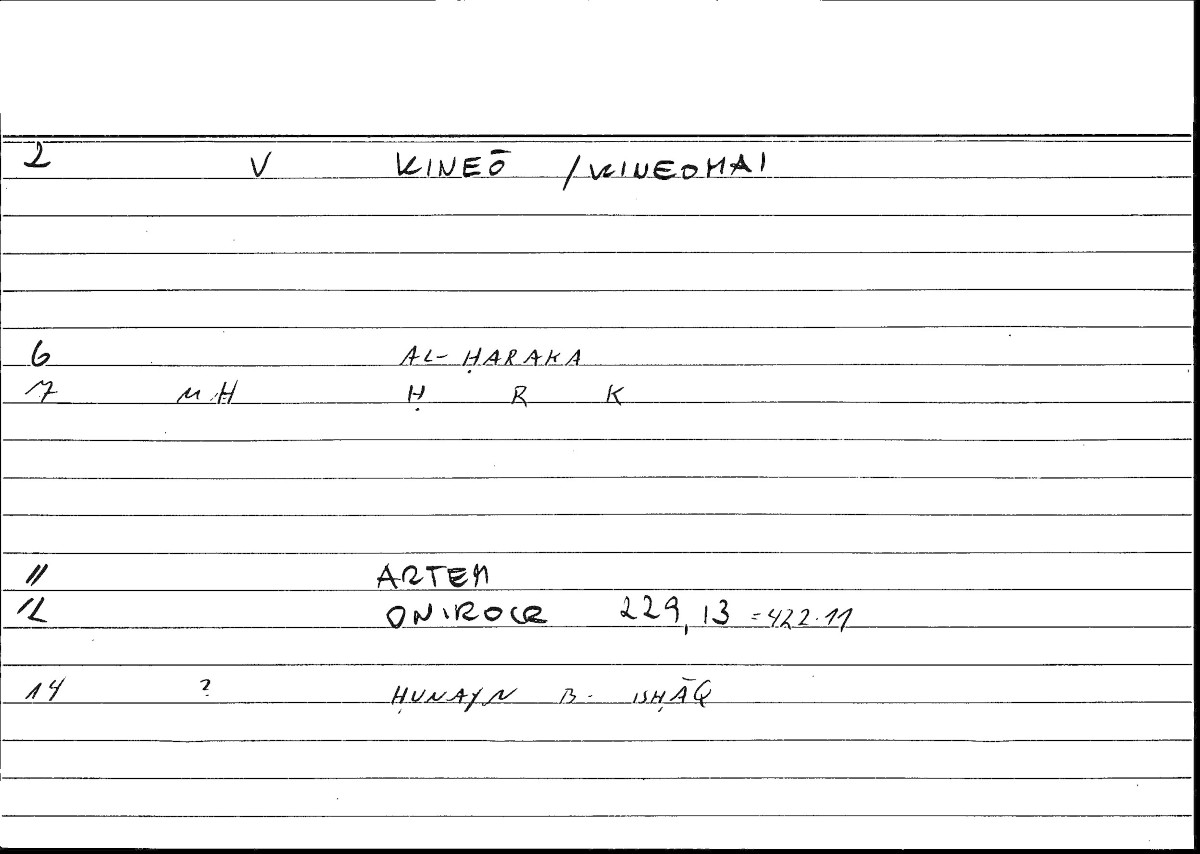 2 V KINEŌ /KINEOMAI
6 AL-ḤARAKA
7 MH Ḥ R K
11 ARTEM
12 ONIROCR 229,13 =422.11
14 ? ḤUNAYN B. ISḤĀQ